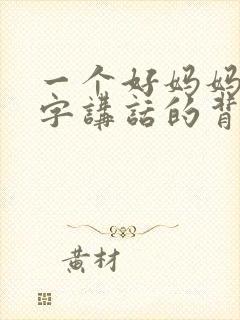 一个好妈妈
字講話的背
黄材